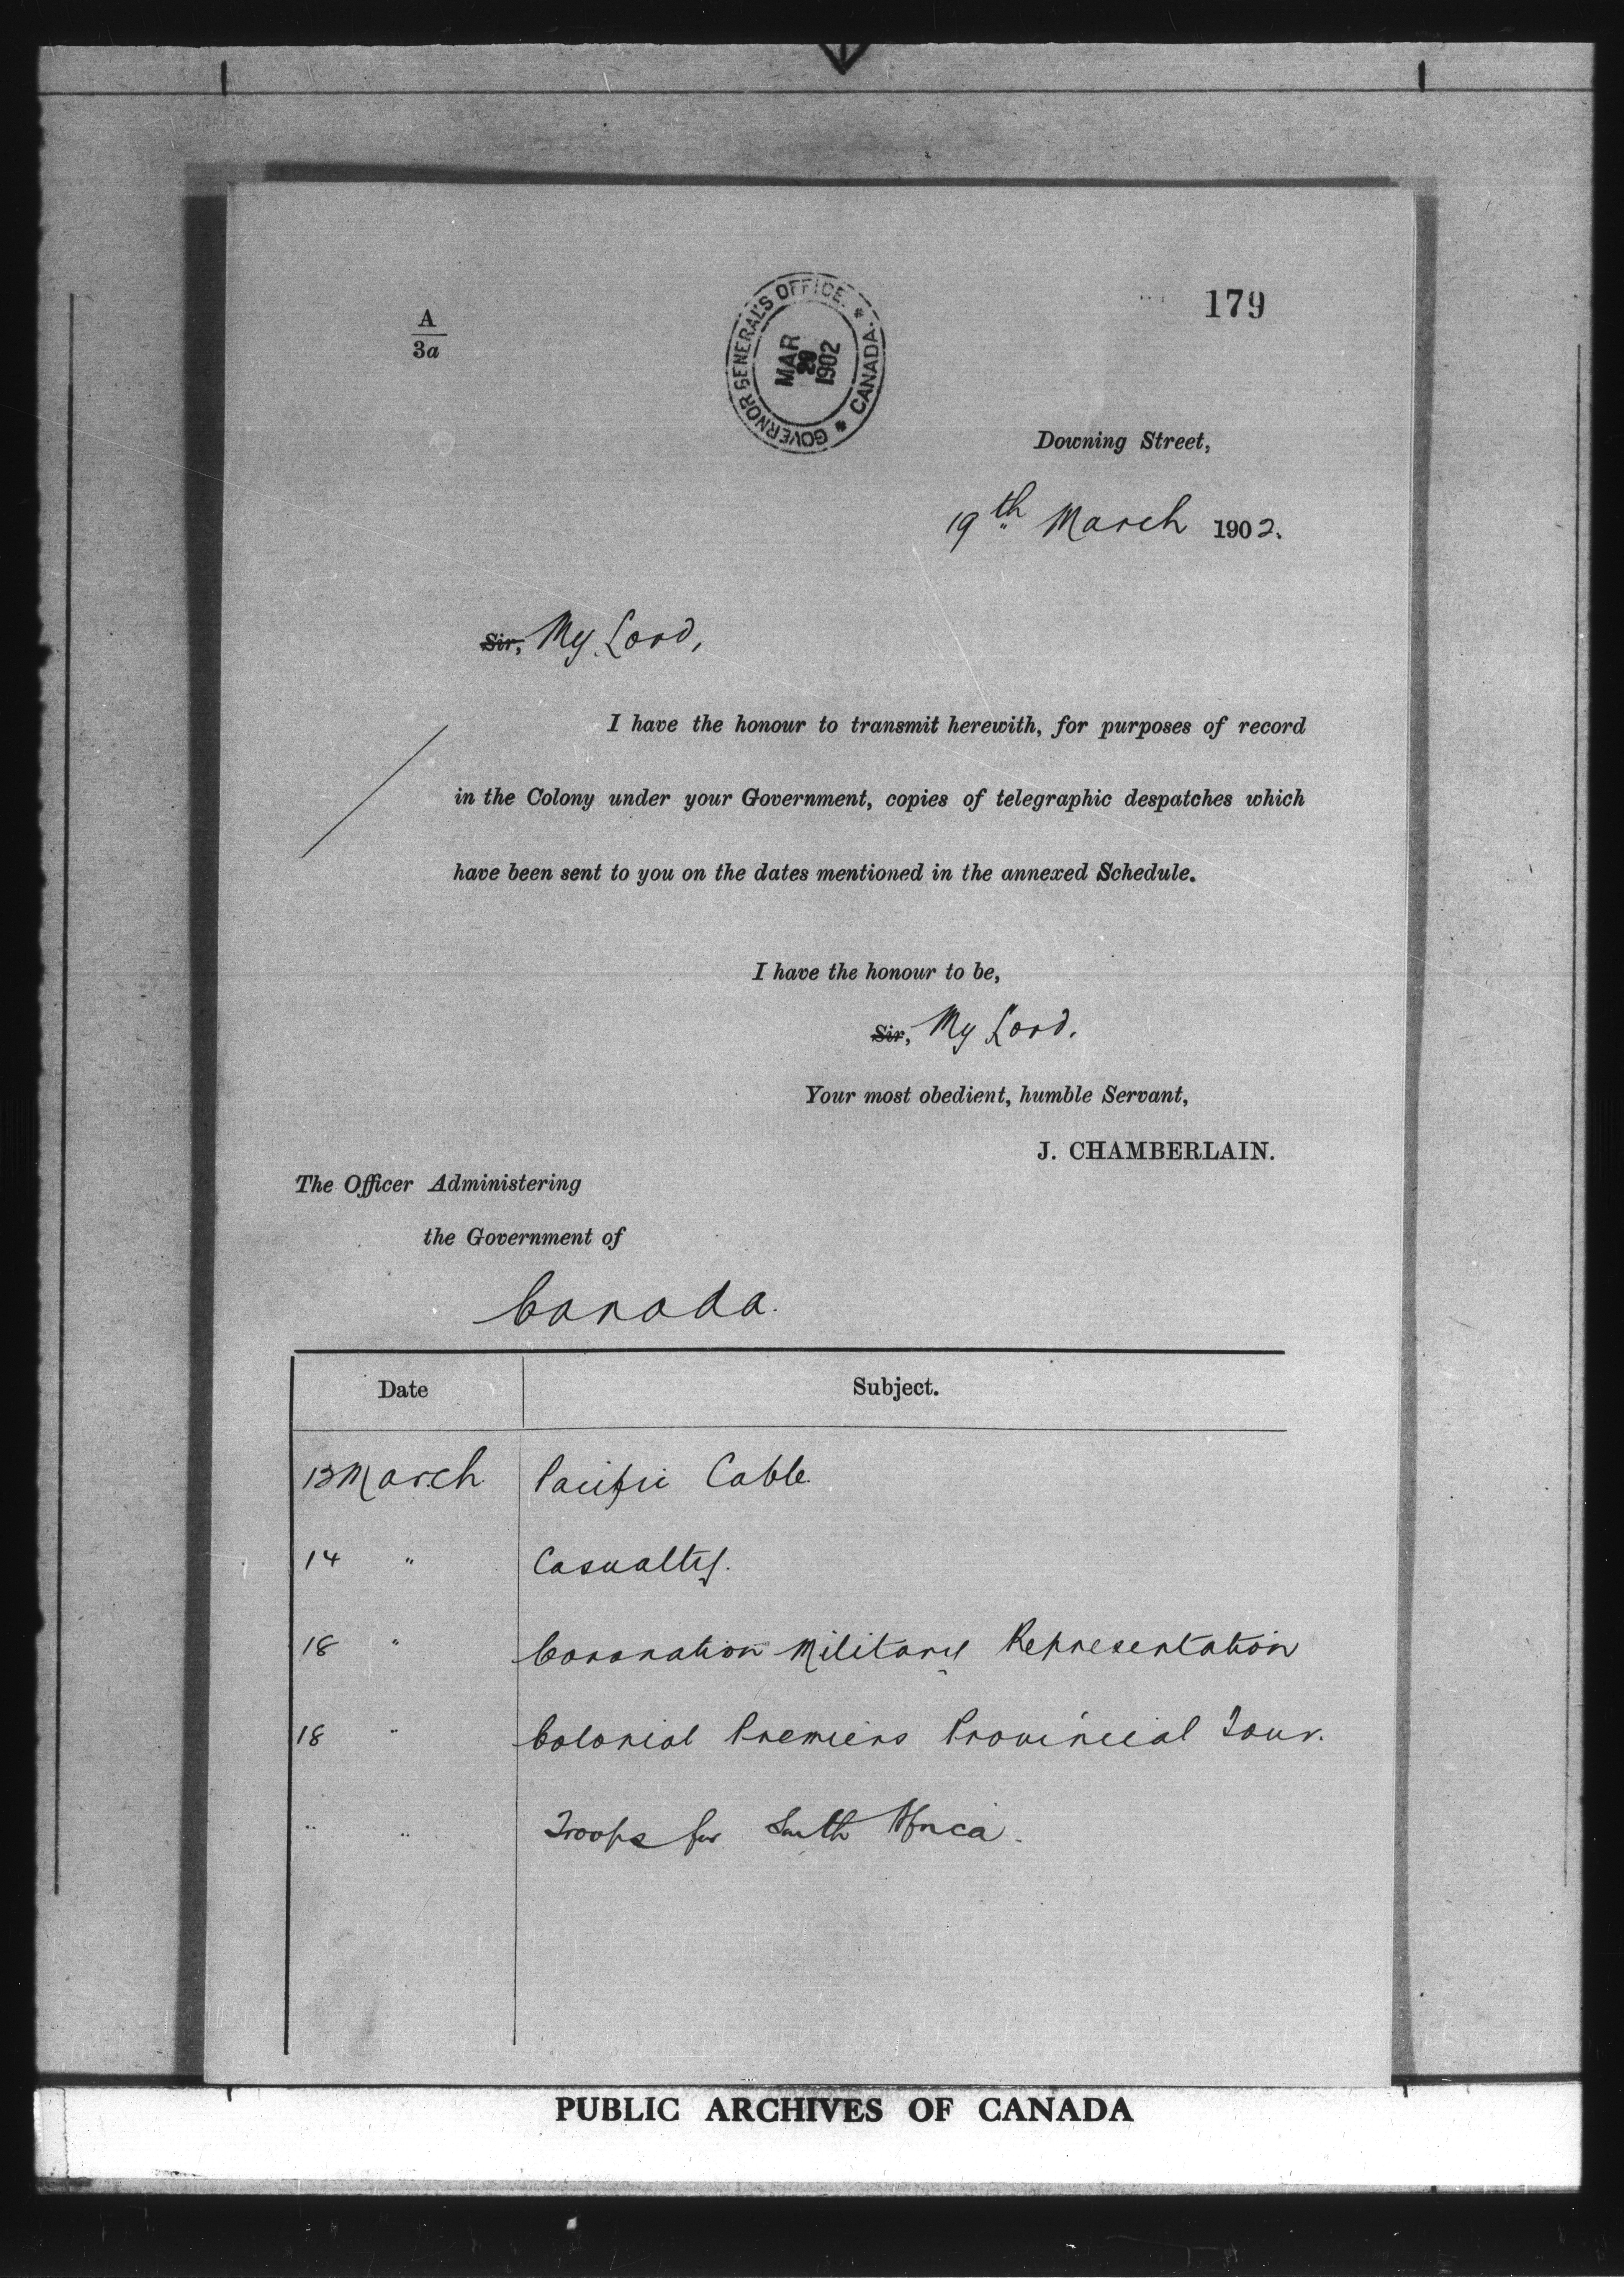 179
A
3a
GOVERNOR GENERAL'S OFFICE * CANADA *
MAR
29
1902
Downing Street,
19th March 1902.
Sir, My Lord,
I have the honour to transmit herewith, for purposes of record
in the Colony under your Government, copies of telegraphic despatches which
have been sent to you on the dates mentioned in the annexed Schedule.
I have the honour to be,
Sir, My Lord.
Your most obedient, humble Servant,
J. CHAMBERLAIN.
The Officer Administering
the Government of
Canada.
Date Subject.
13 March Pacific Cable
14 " Casualty.
18 " Coronation Military Representation
18 " Colonial Premiers Provincial Tour.
" " Troops for South Africa.
PUBLIC ARCHIVES OF CANADA